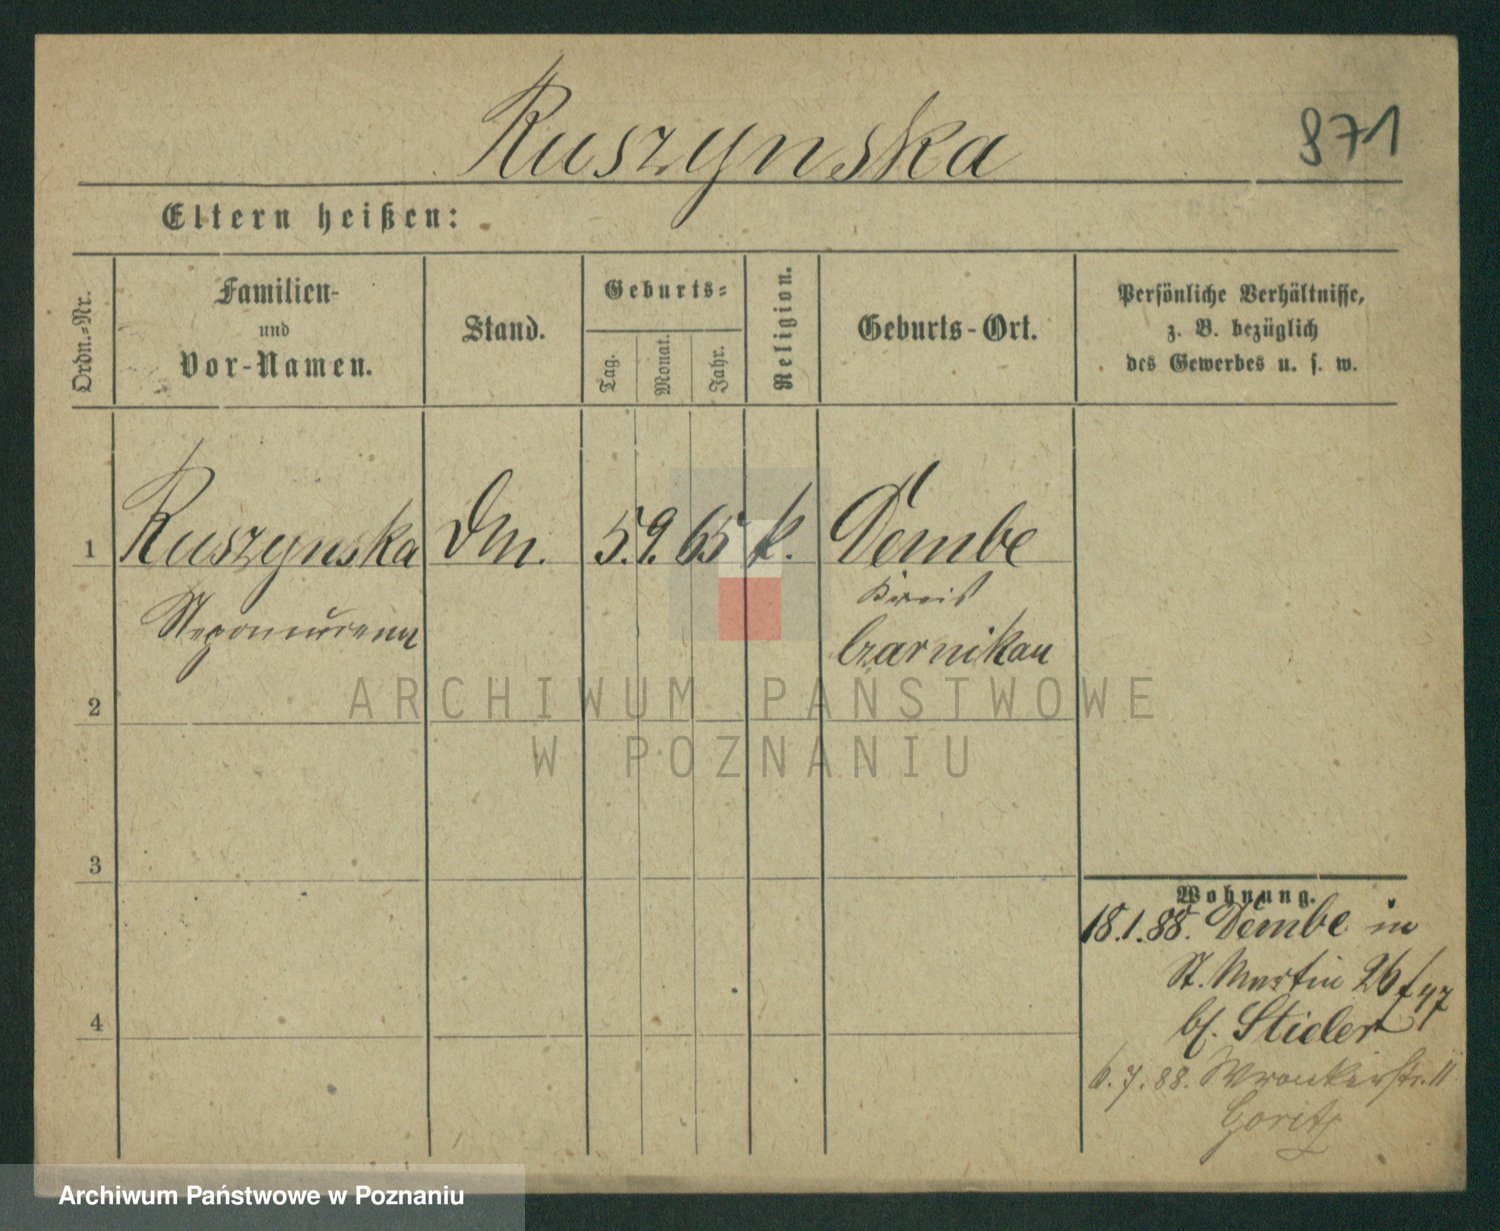 Ruszynska
871
Eltern heißen:
Ordn.-Nr.
Familien-
und
Vor-Namen.
Stand.
Geburts-
Tag.
Monat.
Jahr.
Religion.
Geburts-Ort.
Persönliche Verhältnisse,
z. B. bezüglich
des Gewerbes u. s. w.
1
Ruszynska
Dm.
5. 9. 65
k.
Dembe
Nepomucena
Kreis
Czarnikau
ARCHIWUM PAŃSTWOWE
W POZNANIU
2
3
4
Wohnung.
18.1.88. Dembe in
St. Martin 26
bei Stieler
6.7.88. Wronkerstr. 11
Goritz
Archiwum Państwowe w Poznaniu